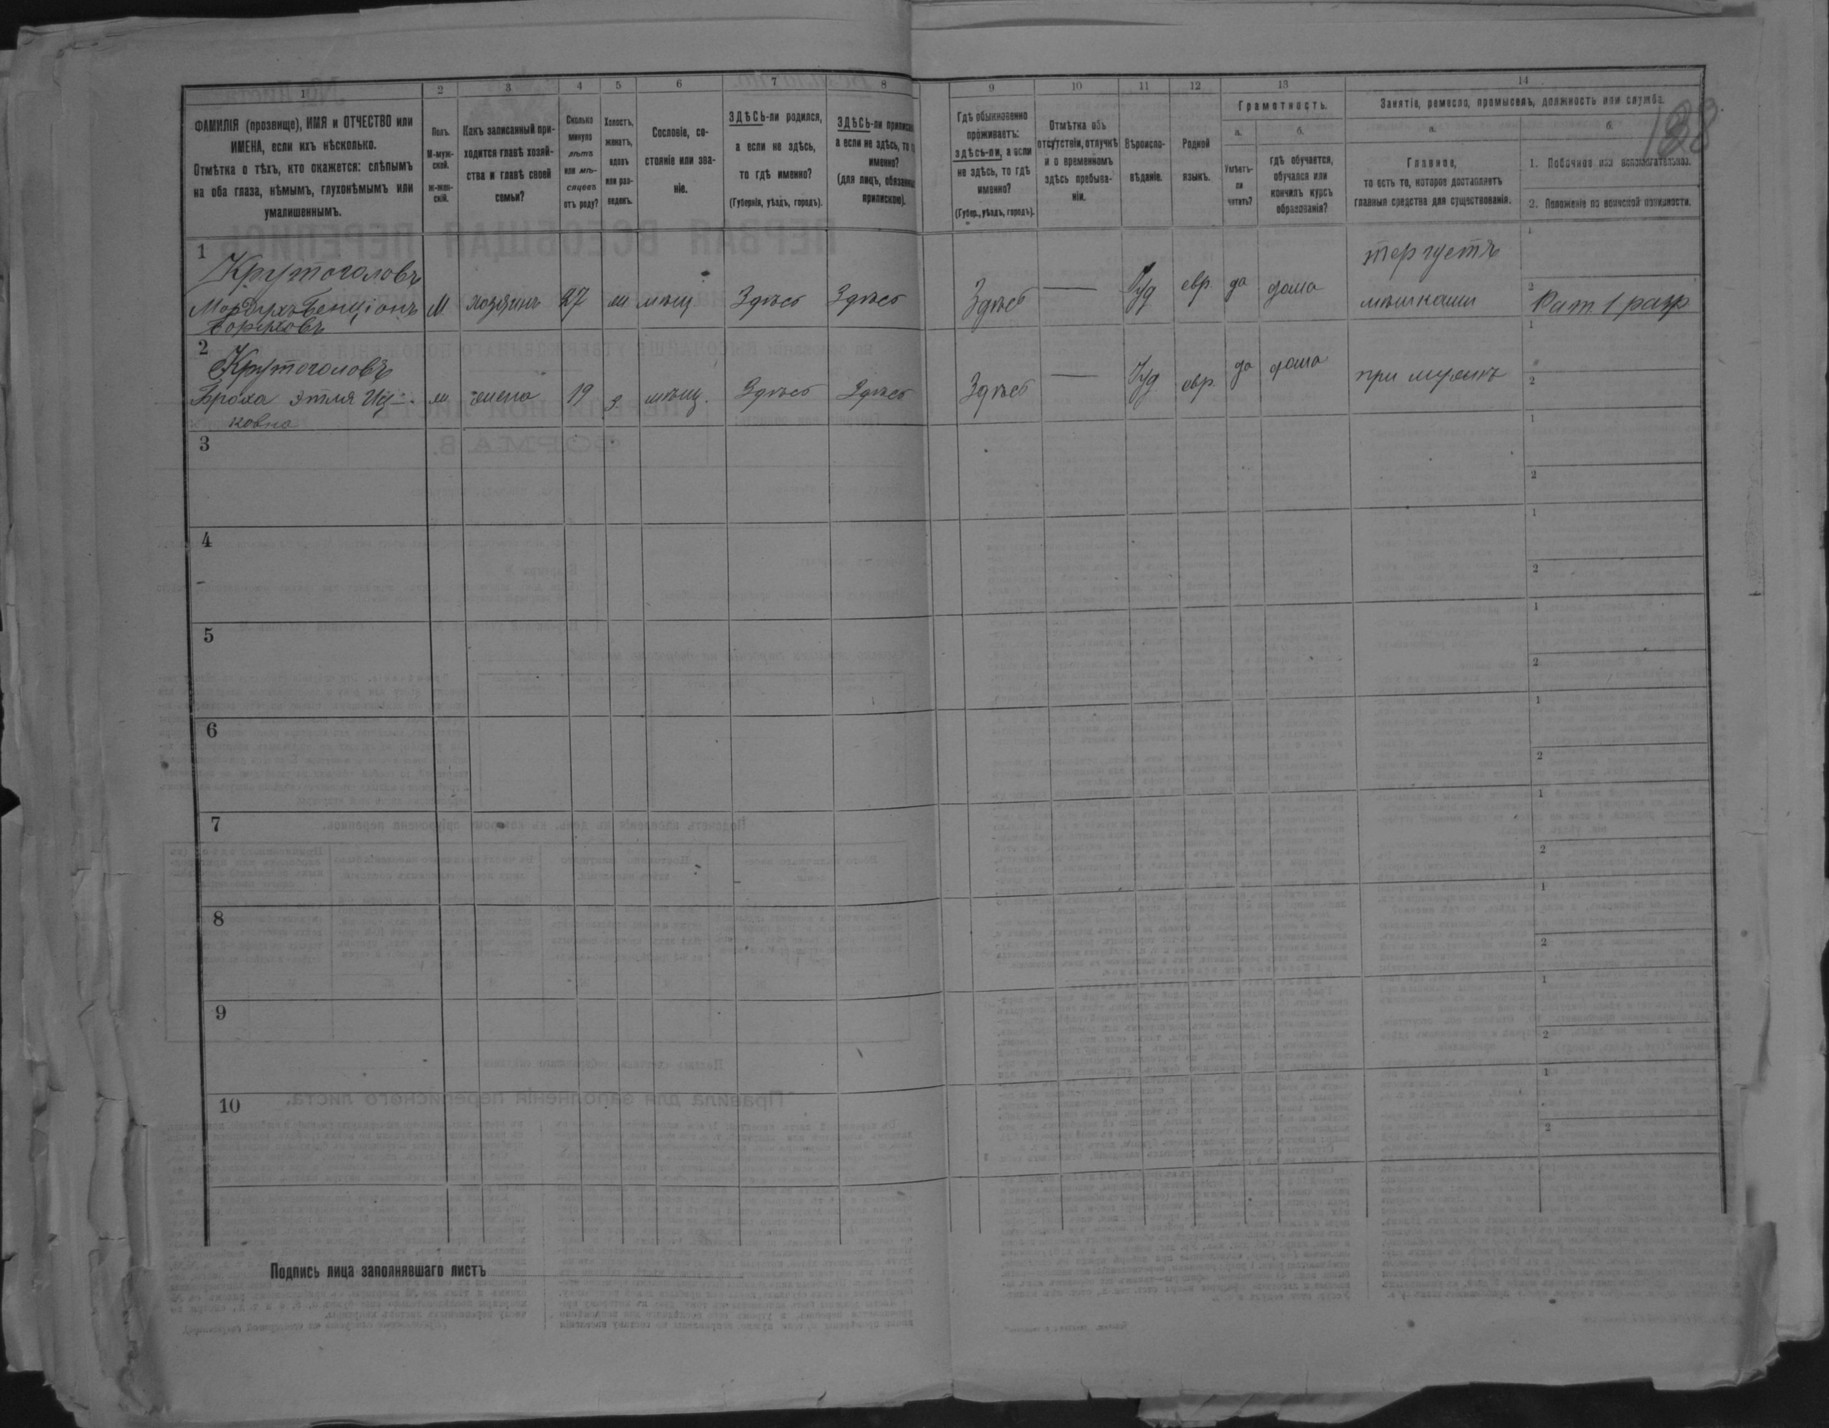 1
ФАМИЛІЯ (прозвище), ИМЯ и ОТЧЕСТВО или
ИМЕНА, если ихъ нѣсколько.
Отмѣтка о тѣхъ, кто окажется: слѣпымъ
на оба глаза, нѣмымъ, глухонѣмымъ или
умалишеннымъ.
2
Полъ.
М-муж-
ской.
ж-жен-
скій.
3
Какъ записанный при-
ходится главѣ хозяй-
ства и главѣ своей
семьи?
4
Сколько
минуло
лѣтъ
или мѣ-
сяцевъ
отъ роду?
5
Холостъ,
женатъ,
вдовъ
или раз-
веденъ.
6
Сословіе, со-
стояніе или зва-
ніе.
7
ЗДѢСЬ-ли родился,
а если не здѣсь,
то гдѣ именно?
(Губернія, уѣздъ, городъ).
8
ЗДѢСЬ-ли приписанъ,
а если не здѣсь, то гдѣ
именно?
(для лицъ, обязанныхъ
припискою).
9
Гдѣ обыкновенно
проживаетъ:
здѣсь-ли, а если
не здѣсь, то гдѣ
именно?
(Губер., уѣздъ, городъ).
10
Отмѣтка объ
отсутствіи, отлучкѣ
и о временномъ
здѣсь пребыва-
ніи.
11
Вѣроиспо-
вѣданіе.
12
Родной
языкъ.
13
Грамотность.
а.
Умѣетъ-
ли
читать?
б.
гдѣ обучается,
обучался или
кончилъ курсъ
образованія?
14
Занятіе, ремесло, промыселъ, должность или служба.
а.
Главное,
то есть то, которое доставляетъ
главныя средства для существованія.
б.
1. Побочное или вспомогательное.
2. Положеніе по воинской повинности.
1
Крутоголовъ
Мордухъ Бенціонъ
Боруховъ
М хозяинъ 27 ж мѣщ Здѣсь Здѣсь Здѣсь — Іуд евр да дома
мѣшками
1
2 Рат. 1 разр
2
Крутоголовъ
Броха Этля Иц-
ковна
ж жена 19 з мѣщ. Здѣсь Здѣсь Здѣсь — Іуд евр. да дома при мужѣ
1
2
3
1
2
4
1
2
5
1
2
6
1
2
7
1
2
8
1
2
9
1
2
10
1
2
Подпись лица заполнявшаго листъ